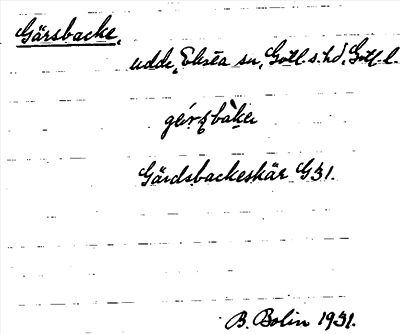 Gärsbacke,
udde, Eksta sn, Gotl. s. hd, Gotl. l.
Gärdsbackeskär G31.
B. Bolin 1931.